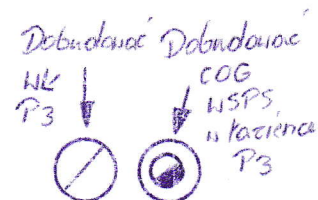 Dobudować Dobudować
WŁ COG
P3 WSPS
w łazience
P3